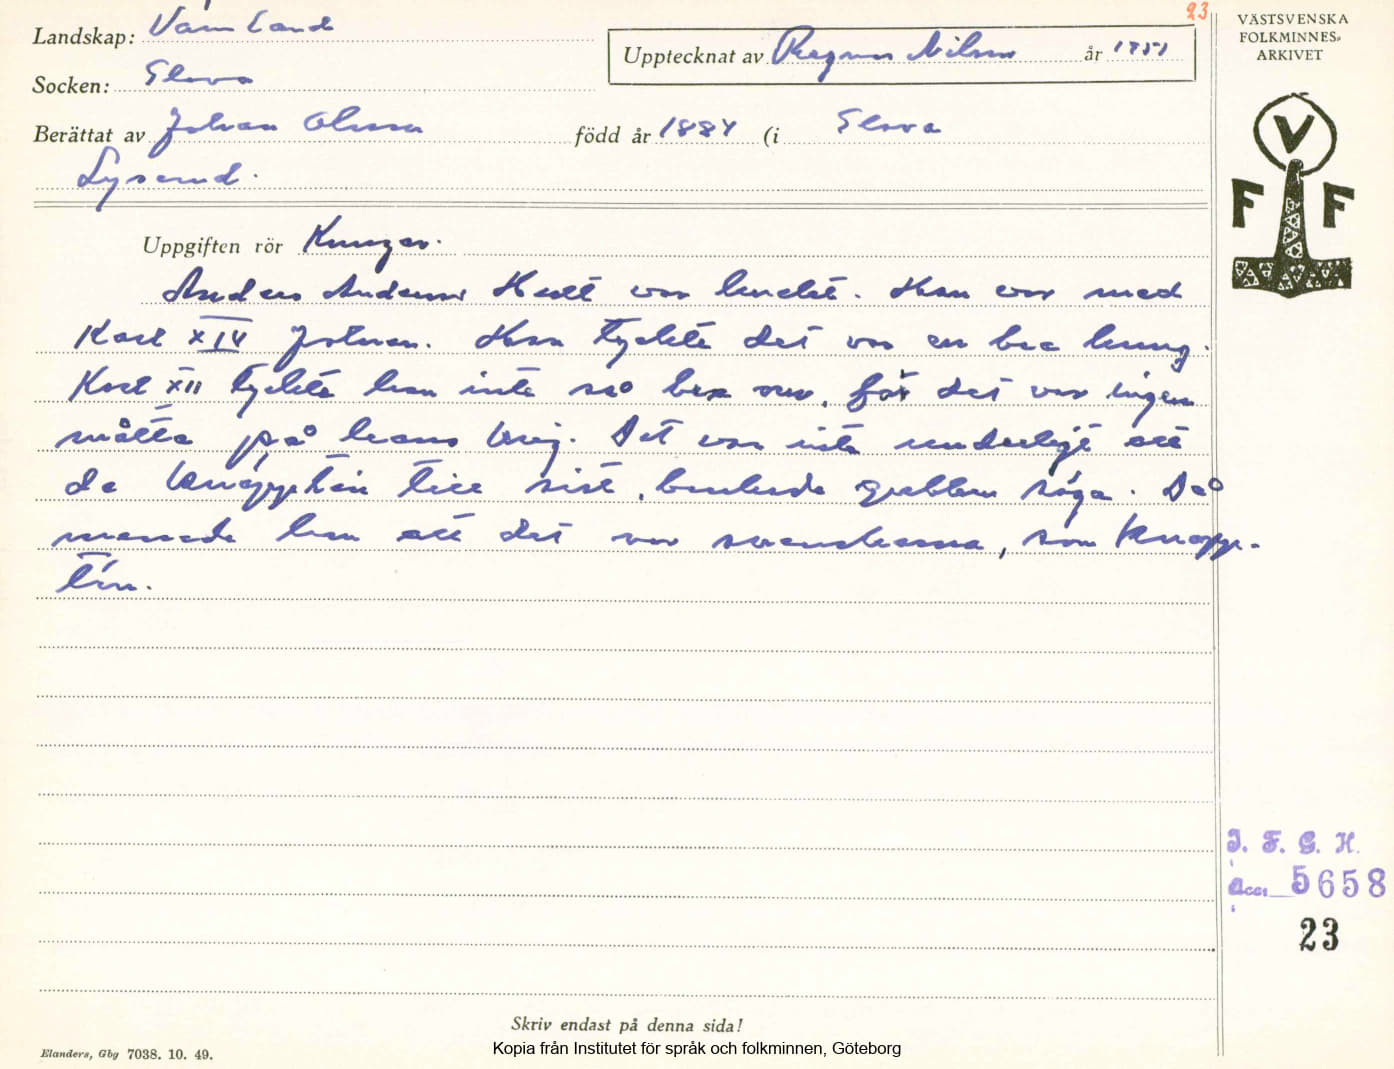 23
VÄSTSVENSKA
FOLKMINNES-
ARKIVET
Landskap: Värmland
Upptecknat av Ragnar Nilsson år 1951
Socken: Elova
Berättat av Johan Olsson född år 1884 (i Elova
Lyserud.
V
F F
Uppgiften rör Kungar.
Anders Andersson Hult var knekt. Han var med
Karl XIV Johan. Han tyckte det var en bra kung.
Karl XII tyckte han inte så bra om, för det var ingen
måtta på hans krig. Det var inte underligt att
de knäppte'n till sist, brukade gubben säga. Då
menade han att det var svenskarna, som knäpp-
te'n.
I. F. G. H.
Acc. 5658
23
Skriv endast på denna sida!
Elanders, Gbg 7038. 10. 49.
Kopia från Institutet för språk och folkminnen, Göteborg